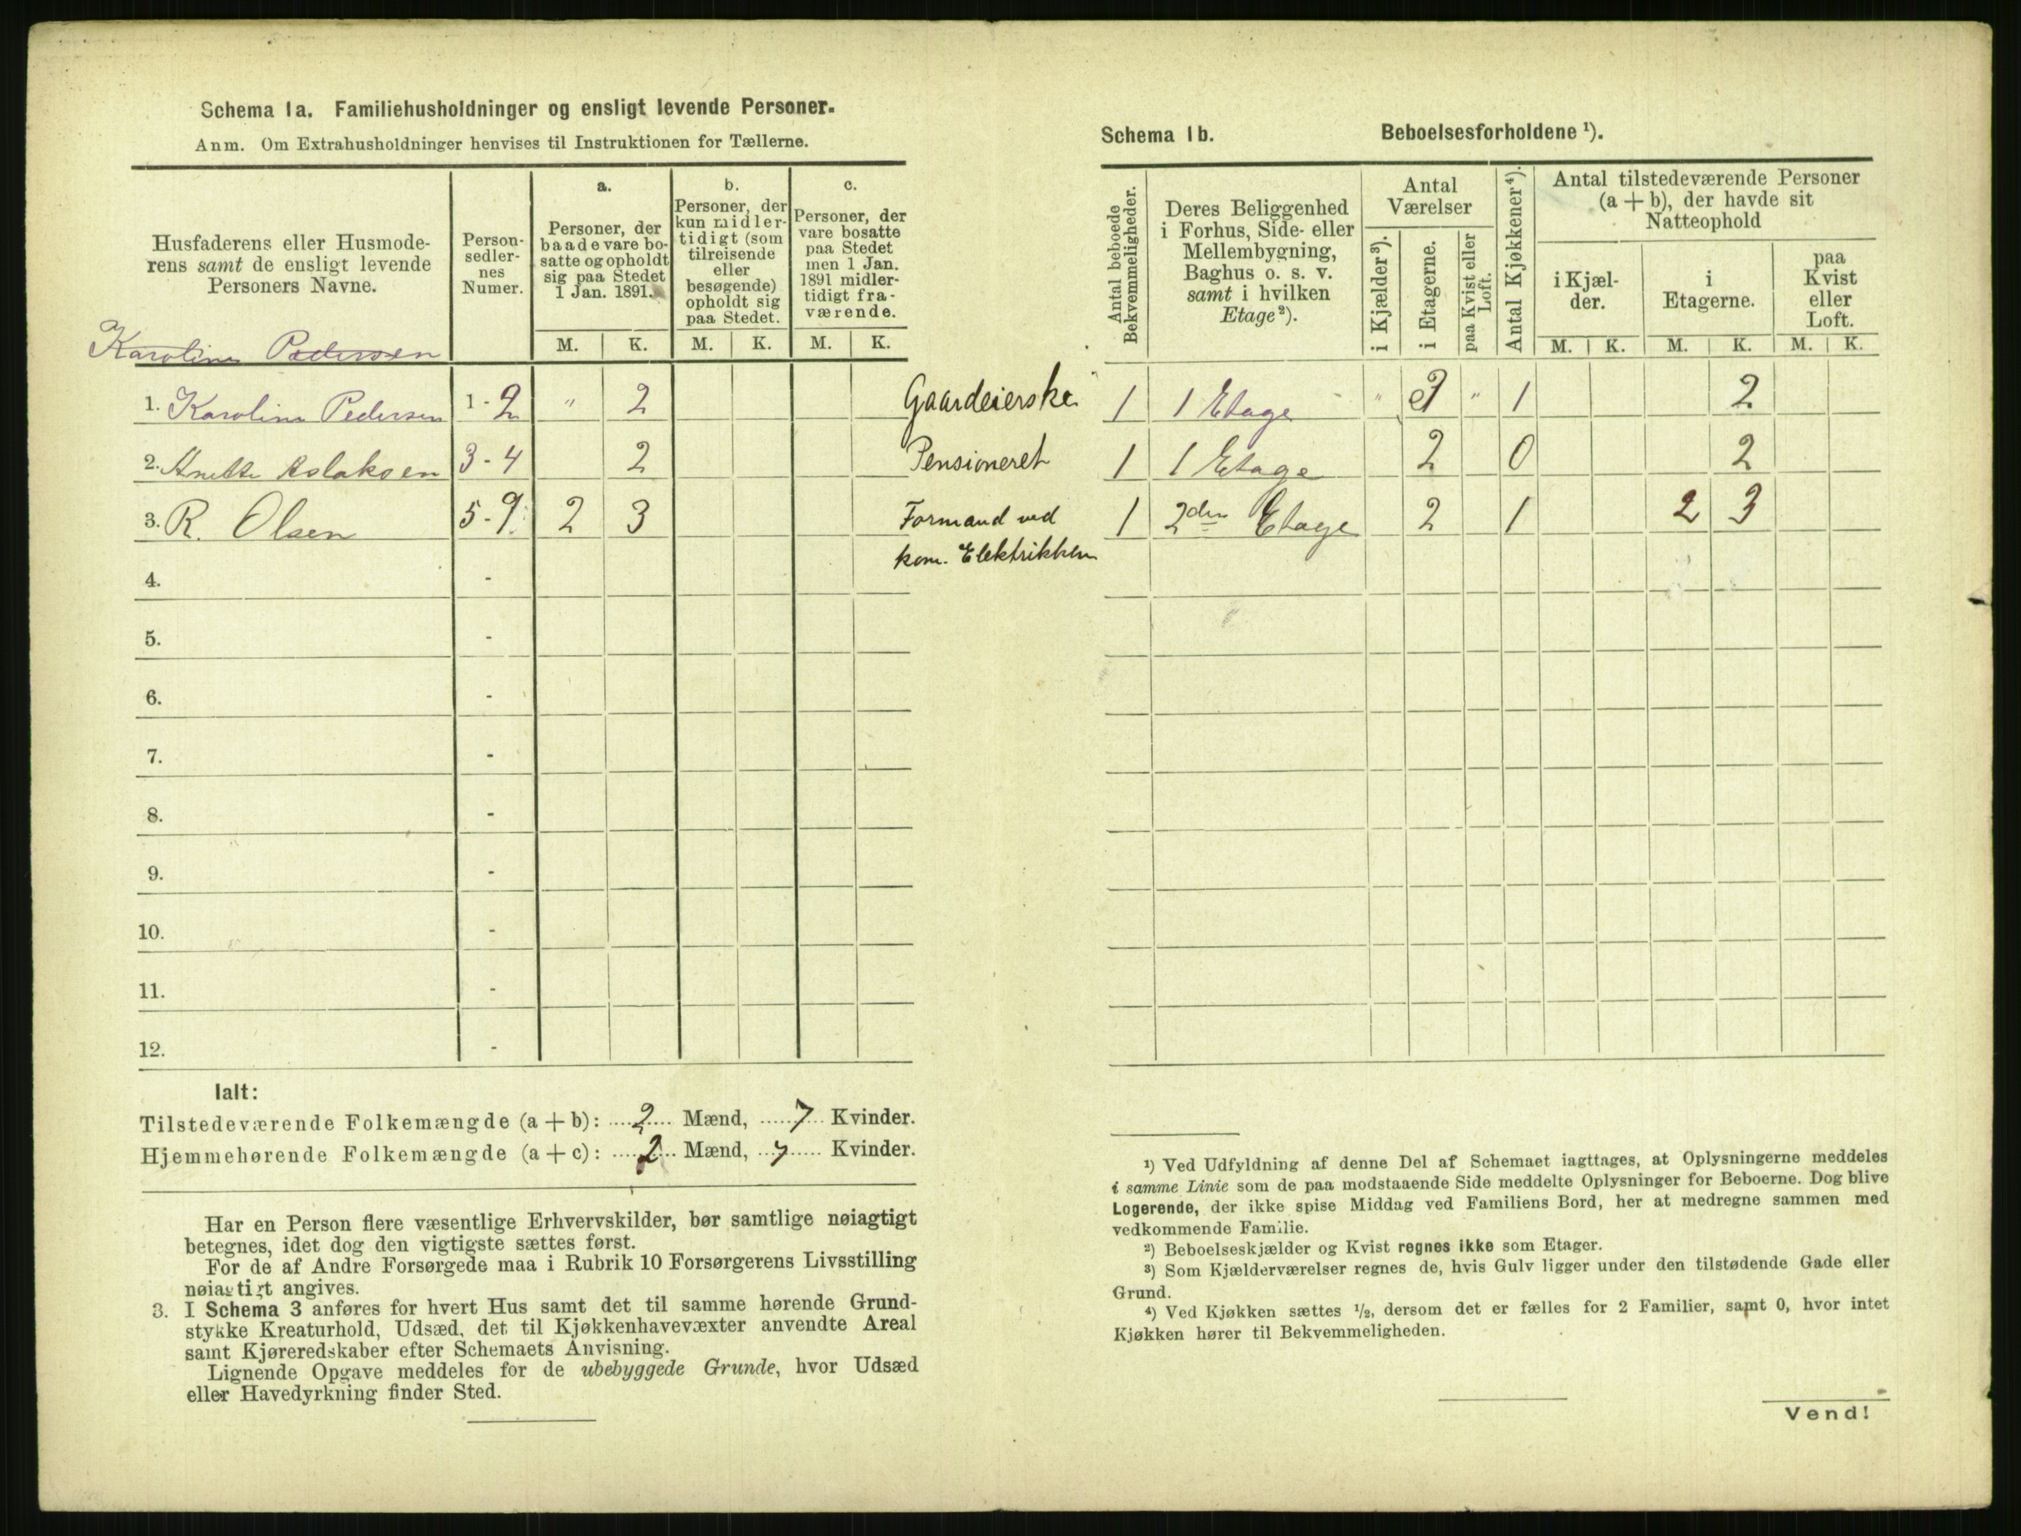 Schema 1a. Familiehusholdninger og ensligt levende Personer.
Anm. Om Extrahusholdninger henvises til Instruktionen for Tællerne.
Husfaderens eller Husmode-
rens samt de ensligt levende
Personers Navne.
Person-
sedler-
nes
Numer.
a.
Personer, der
baade vare bo-
satte og opholdt
sig paa Stedet
1 Jan. 1891.
b.
Personer, der
kun midler-
tidigt (som
tilreisende
eller
besøgende)
opholdt sig
paa Stedet.
c.
Personer, der
vare bosatte
paa Stedet
men 1 Jan.
1891 midler-
tidigt fra-
værende.
M. K. M. K. M. K.
Karoline Pedersen
1. Karoline Pedersen 1 - 2 " 2 Gaardeierske
2. Anette Aslaksen 3 - 4 2 Pensioneret
3. R. Olsen 5 - 9. 2 3 Formand ved
kom. Elektrikken
4. -
5. -
6. -
7. -
8. -
9. -
10. -
11. -
12. -
Ialt:
Tilstedeværende Folkemængde (a + b): 2 Mænd, 7 Kvinder.
Hjemmehørende Folkemængde (a + c): 2 Mænd, 7 Kvinder.
Har en Person flere væsentlige Erhvervskilder, bør samtlige nøiagtigt
betegnes, idet dog den vigtigste sættes først.
For de af Andre Forsørgede maa i Rubrik 10 Forsørgerens Livsstilling
nøiagtigt angives.
3. I Schema 3 anføres for hvert Hus samt det til samme hørende Grund-
stykke Kreaturhold, Udsæd, det til Kjøkkenhavevæxter anvendte Areal
samt Kjøreredskaber efter Schemaets Anvisning.
Lignende Opgave meddeles for de ubebyggede Grunde, hvor Udsæd
eller Havedyrkning finder Sted.
Schema 1b. Beboelsesforholdene ¹).
Antal beboede
Bekvemmeligheder.
Deres Beliggenhed
i Forhus, Side- eller
Mellembygning,
Baghus o. s. v.
samt i hvilken
Etage ²).
Antal
Værelser
i Kjælder ³).
i Etagerne.
paa Kvist eller
Loft.
Antal Kjøkkener ⁴).
Antal tilstedeværende Personer
(a + b), der havde sit
Natteophold
i Kjæl-
der.
i
Etagerne.
paa
Kvist
eller
Loft.
M. K. M. K. M. K.
1 1 Etage " 3 " 1 2
1 1 Etage 2 0 2
1 2den Etage 2 1 2 3
¹) Ved Udfyldning af denne Del af Schemaet iagttages, at Oplysningerne meddeles
i samme Linie som de paa modstaaende Side meddelte Oplysninger for Beboerne. Dog blive
Logerende, der ikke spise Middag ved Familiens Bord, her at medregne sammen med
vedkommende Familie.
²) Beboelseskjælder og Kvist regnes ikke som Etager.
³) Som Kjælderværelser regnes de, hvis Gulv ligger under den tilstødende Gade eller
Grund.
⁴) Ved Kjøkken sættes ¹/₂, dersom det er fælles for 2 Familier, samt 0, hvor intet
Kjøkken hører til Bekvemmeligheden.
Vend!